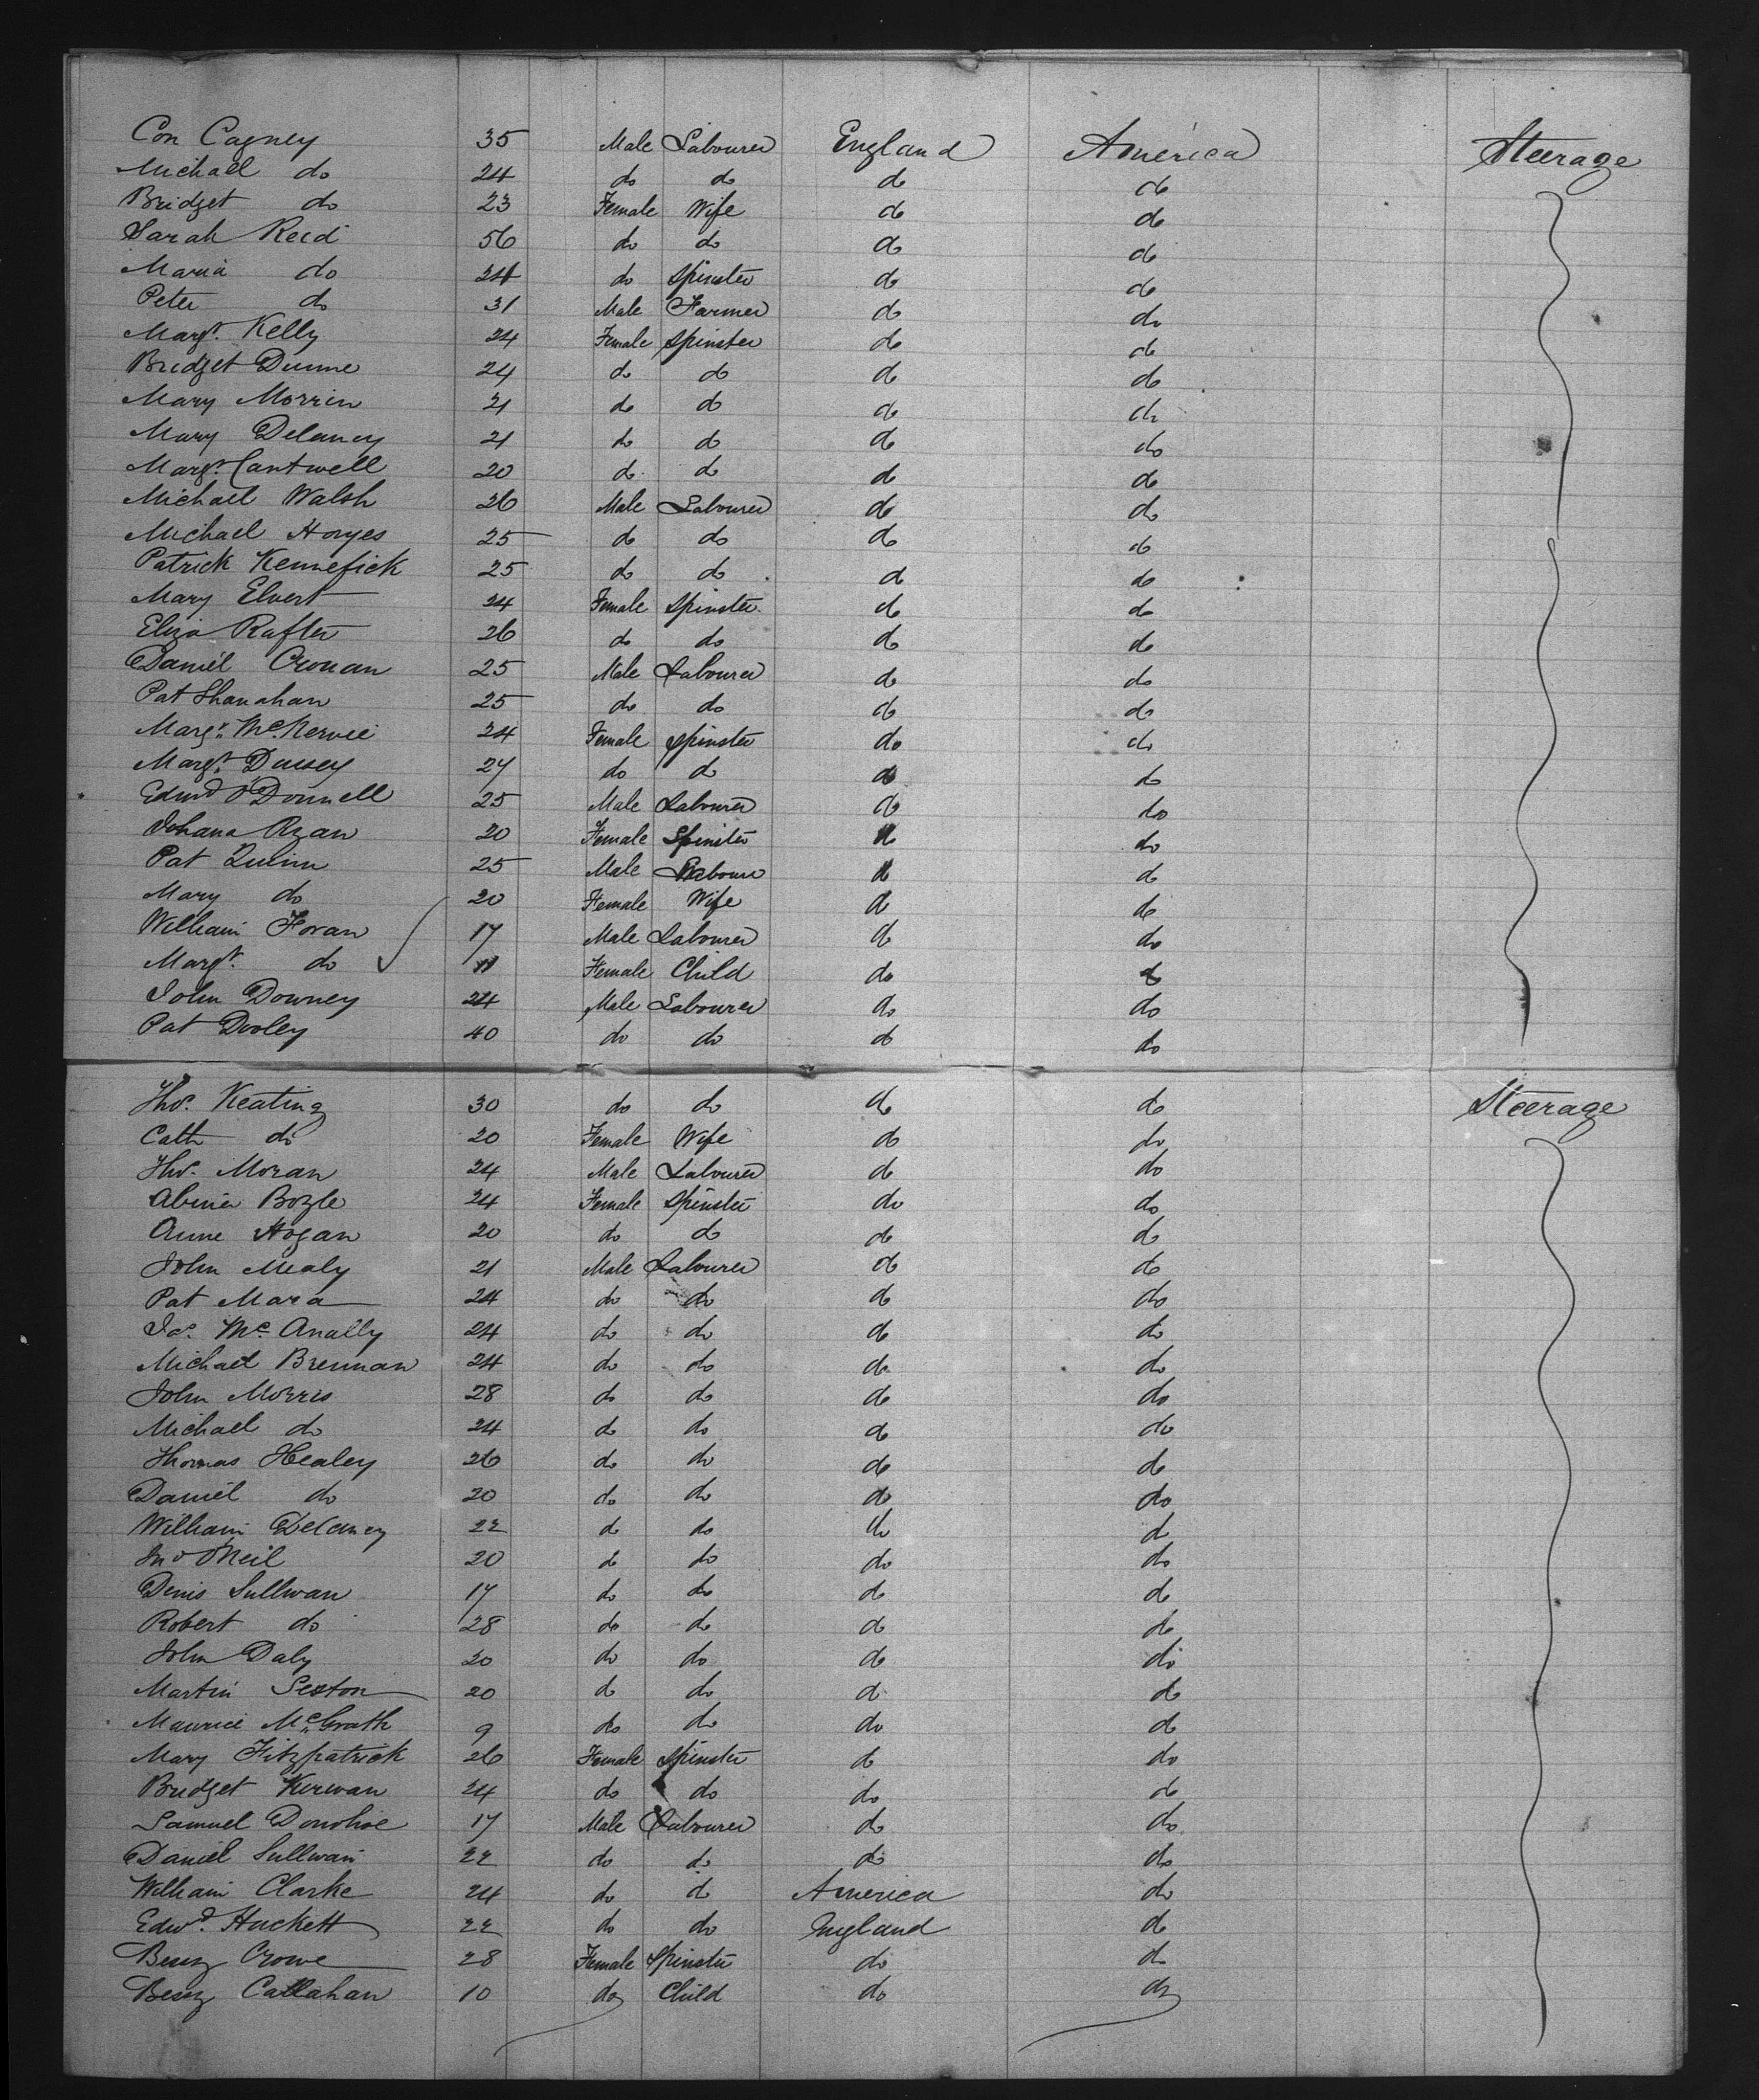 Con Cagney 35 Male Labourer England America Steerage
Michael do 24 do do do do
Bridget do 23 Female Wife do do
Sarah Reid 56 do do do do
Maria do 24 do Spinster do do
Peter do 31 Male Farmer do do
Margt. Kelly 24 Female Spinster do do
Bridget Dunne 24 do do do do
Mary Morrin 21 do do do do
Mary Delaney 21 do do do do
Margt. Cantwell 20 do do do do
Michael Walsh 26 Male Labourer do do
Michael Hoyes 25 do do do do
Patrick Kennefick 25 do do do do
Mary Elvert 24 Female Spinster do do
Eliza Rafter 26 do do do do
Daniel Cronan 25 Male Labourer do do
Pat Shanahan 25 do do do do
Margt. 24 Female Spinster do do
Margt. 27 do do do do
Edmd O'Donnell 25 Male Labourer do do
Johana Ryan 20 Female Spinster do do
Pat Quinn 25 Male Labourer do do
Mary do 20 Female Wife do do
William Foran 17 Male Labourer do do
Margt. do 11 Female Child do do
John Downey 24 Male Labourer do do
Pat Dooley 40 do do do do
Thos. Keating 30 do do do do Steerage
Cath do 20 Female Wife do do
Thos. Moran 24 Male Labourer do do
Abina Bozle 24 Female Spinster do do
Anne Hogan 20 do do do do
John Mealy 21 Male Labourer do do
Pat Mara 24 do do do do
Jas. McAnally 24 do do do do
Michael Brennan 24 do do do do
John Morris 28 do do do do
Michael do 24 do do do do
Thomas Healey 26 do do do do
Daniel do 20 do do do do
William Delaney 22 do do do do
Jno O'Neil 20 do do do do
Denis Sullivan 17 do do do do
Robert do 28 do do do do
John Daly 20 do do do do
Martin Sexton 20 do do do do
Maurice McGrath 9 do do do do
Mary Fitzpatrick 26 Female Spinster do do
Bridget Kerwan 24 do do do do
Samuel Donohoe 17 Male Labourer do do
Daniel Sullivan 22 do do do do
William Clarke 24 do do America do
Edwd. Hackett 22 do do England do
Bessy Crowe 28 Female Spinster do do
Bessy Callahan 10 do Child do do